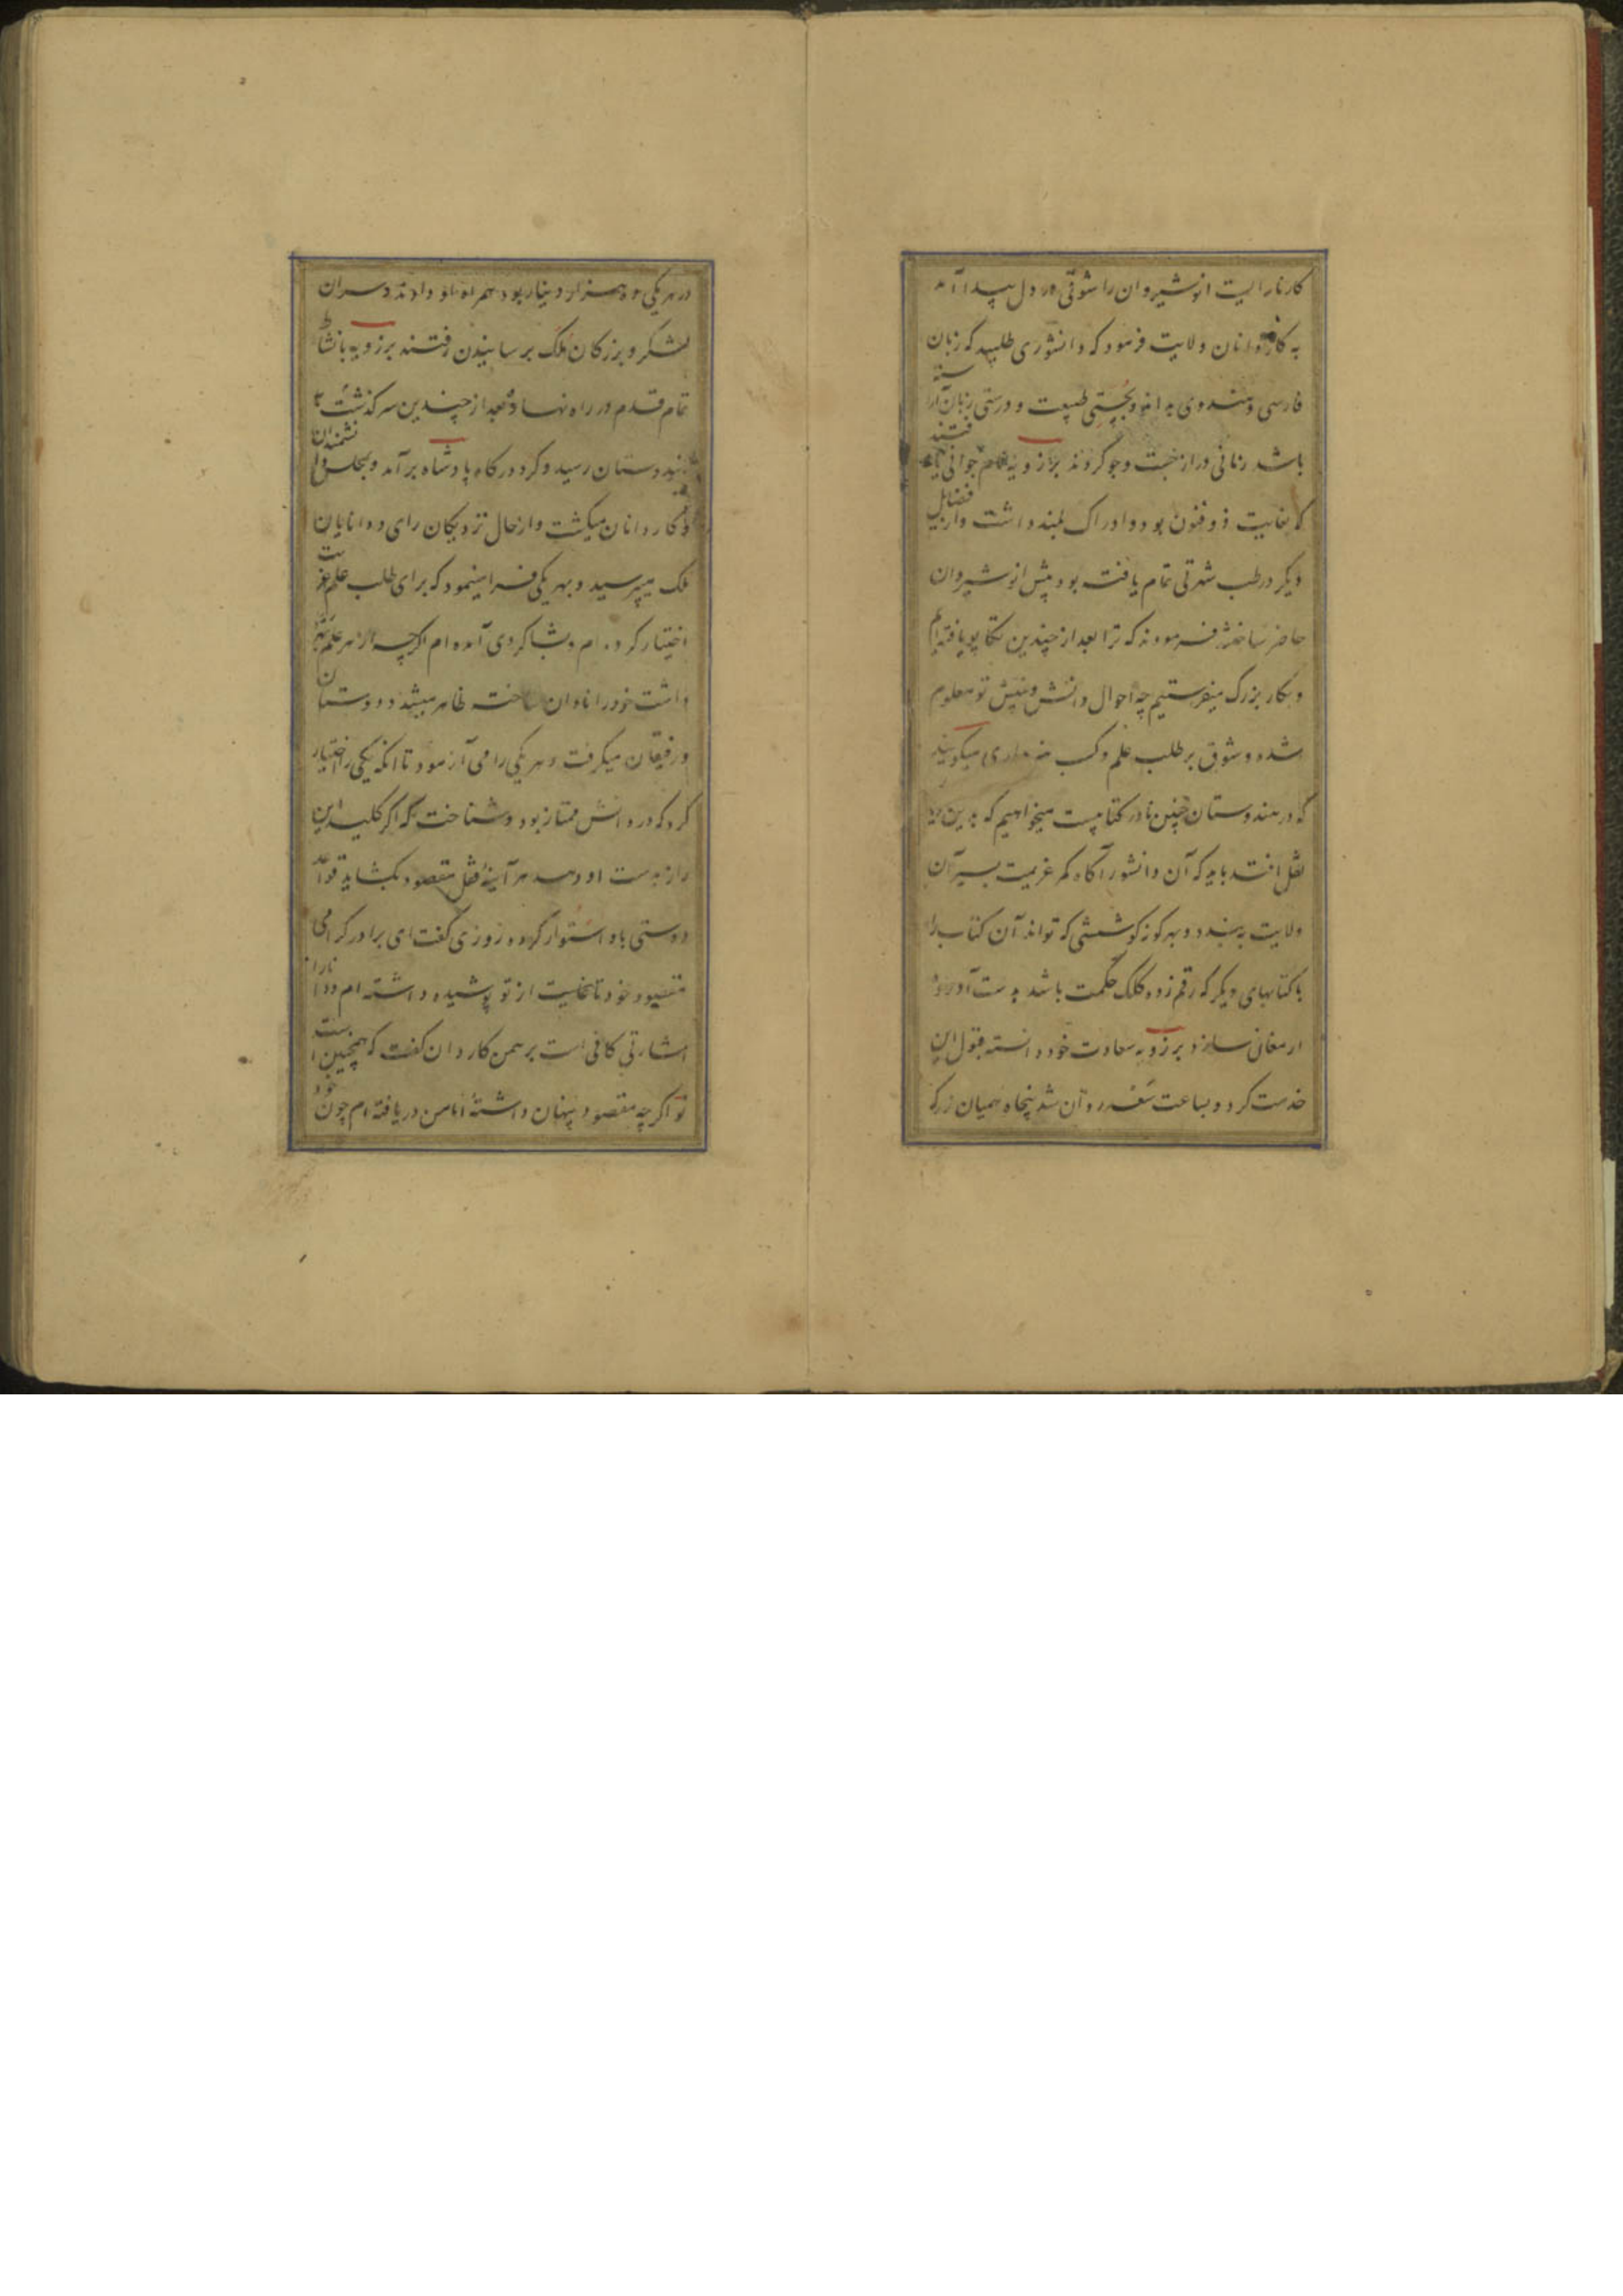 کارنارا ایت انوشیروان را شوقی در دل پیدا آمد
به کاردانان ولایت فرمود که دانشوری طلبید که زبان
فارسی و هندوی بداند و بچستی طبیعت و درستی زبان آراسته
باشد زمانی دراز جست وجو کردند برزویه نام جوانی یافتند
که بغایت ذو فنون بود و ادراک بلند داشت و از فضایل
دیگر در طب شهرتی تمام یافته بود پیش انوشیروان
حاضر ساختند فرمودند که ترا بعد از چندین تکاپو یافته ایم
و بکار بزرگ میفرستیم چه احوال دانش و بینش تو معلوم
شده و شوق بر طلب علم و کسب هنر داری میگویند
که در هندوستان چنین نادر کتابیست میخواهیم که بدین
نقل افتد باید که آن دانشور آگاه کمر عزیمت بسیر آن
ولایت به بندد و بهر گونه کوششی که تواند آن کتاب را
با کتابهای دیگر که رقم زده کلک حکمت باشد بدست آورده
ارمغان سازد برزویه سعادت خود دانسته قبول این
خدمت کرد و بساعت سعد روان شد پنجاه همیان زر که
در هر یکی ده هزار دینار بود همراه او دادند و سران
لشکر و بزرکان ملک برسانیدن رفتند برزویه بانشاط
تمام قدم در راه نهاد و بعد از چندین سرگذشت تا
بهندوستان رسید و گرد درگاه پادشاه برآمد و بمجلس دانشمندان
و کاردانان میگشت و از حال نزدیکان رای و دانایان
ملک میپرسید و بهر یکی فرا مینمود که برای طلب علم غربت
اختیار کرده ام و بشاگردی آمده ام اگرچه از هر علم بهره
داشت خود را نادان ساخته ظاهر میشد و دوستان
و رفیقان میگرفت و هر یکی را می آزمود تا آنکه یکی را اختیار
کرد که در دانش ممتاز بود و شناخت که اگر کلید این
راز بدست او دهد هر آینه قفل مقصود بگشاید قواعد
دوستی باو استوار کرده روزی گفت ای برادر گرامی
مقصود خود تا بغایت از تو پوشیده داشته ام و دانا را
اشارتی کافی است برهمن کاردان گفت که همچنین است
تو اگرچه مقصود پنهان داشته اما من دریافته ام چون خود